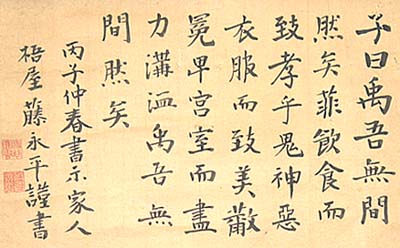 子曰禹吾無間
然矣菲飲食而
致孝乎鬼神惡
衣服而致美黻
冕卑宮室而盡
力溝洫禹吾無
間然矣
丙子仲春書示家人
梧屋藤永平謹書